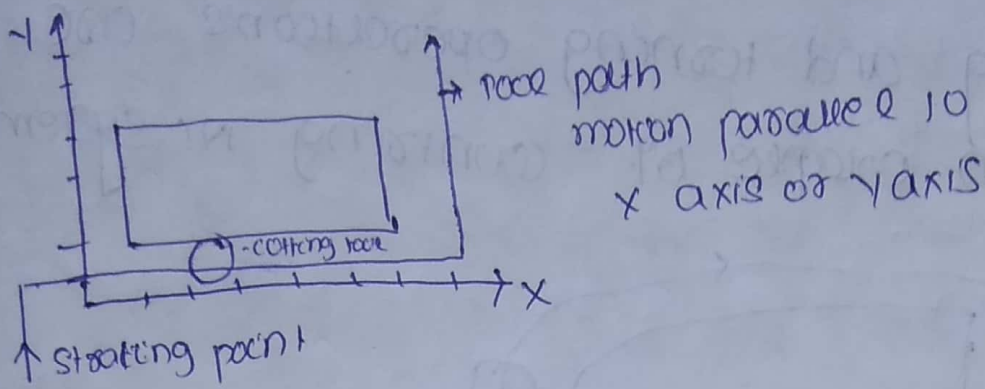 Y
tool path
motion parallel to
X axis or Y axis
-cutting tool
X
starting point